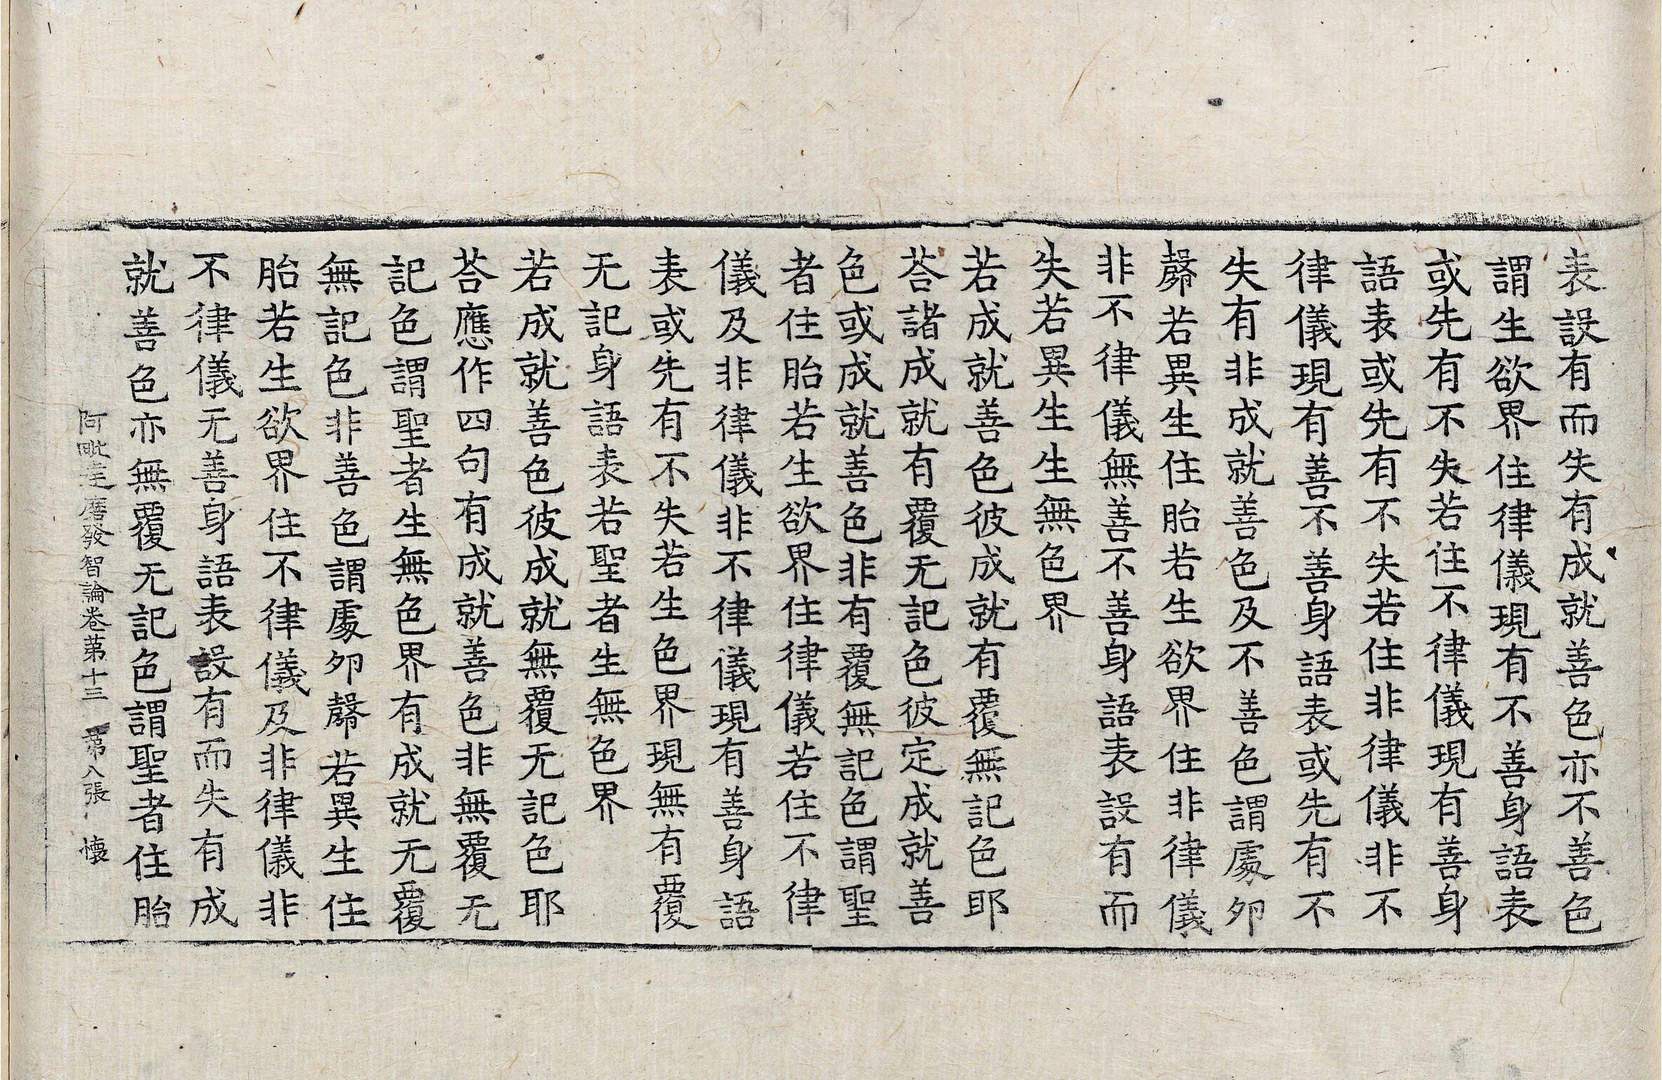 表設有而失有成就善色亦不善色
謂生欲界住律儀現有不善身語表
或先有不失若住不律儀現有善身
語表或先有不失若住非律儀非不
律儀現有善不善身語表或先有不
失有非成就善色及不善色謂處夘
㲉若異生住胎若生欲界住非律儀
非不律儀無善不善身語表設有而
失若異生生無色界
若成就善色彼成就有覆無記色耶
荅諸成就有覆无記色彼定成就善
色或成就善色非有覆無記色謂聖
者住胎若生欲界住律儀若住不律
儀及非律儀非不律儀現有善身語
表或先有不失若生色界現無有覆
无記身語表若聖者生無色界
若成就善色彼成就無覆无記色耶
荅應作四句有成就善色非無覆无
記色謂聖者生無色界有成就无覆
無記色非善色謂處夘㲉若異生住
胎若生欲界住不律儀及非律儀非
不律儀无善身語表設有而失有成
就善色亦無覆无記色謂聖者住胎
阿毗達磨發智論卷第十三 第八張 懷